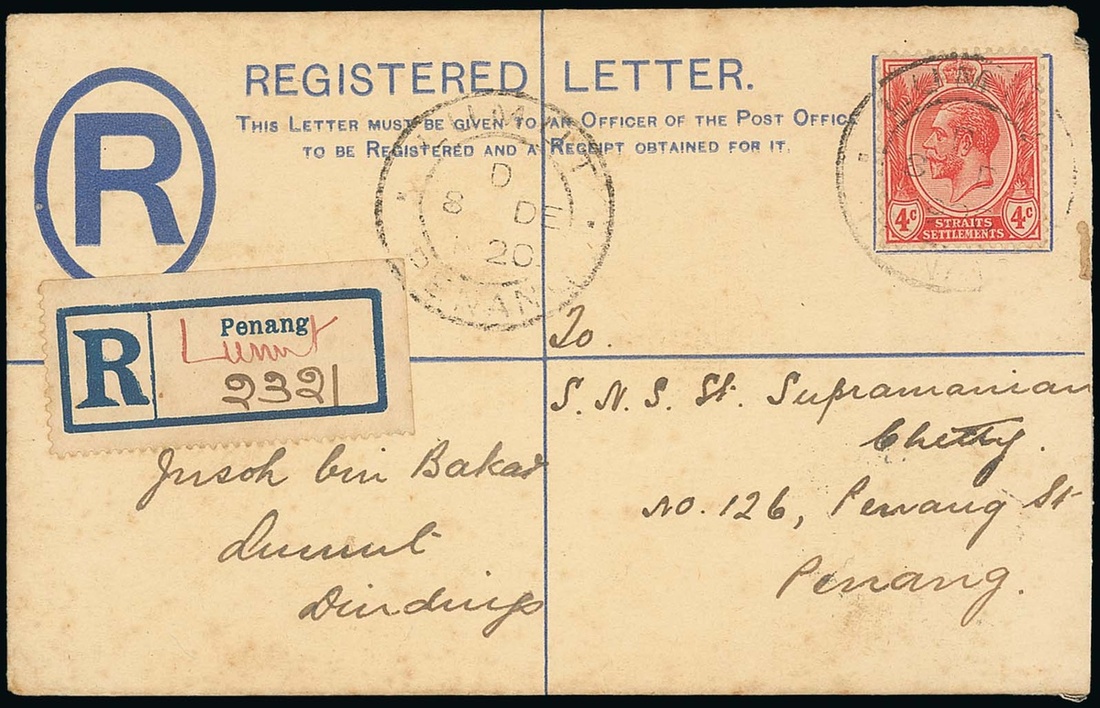 REGISTERED LETTER.
THIS LETTER MUST BE GIVEN TO AN OFFICER OF THE POST OFFICE
TO BE REGISTERED AND A RECEIPT OBTAINED FOR IT.
R
4c 4c
STRAITS
SETTLEMENTS
LUMUT
D
8 DE
20
PENANG
R
Penang
Lumut
2321
To.
S. N. S. St. Supramanian
Chetty.
No. 126, Penang St
Penang.
Jusoh bin Bakar
Lumut
Dindings